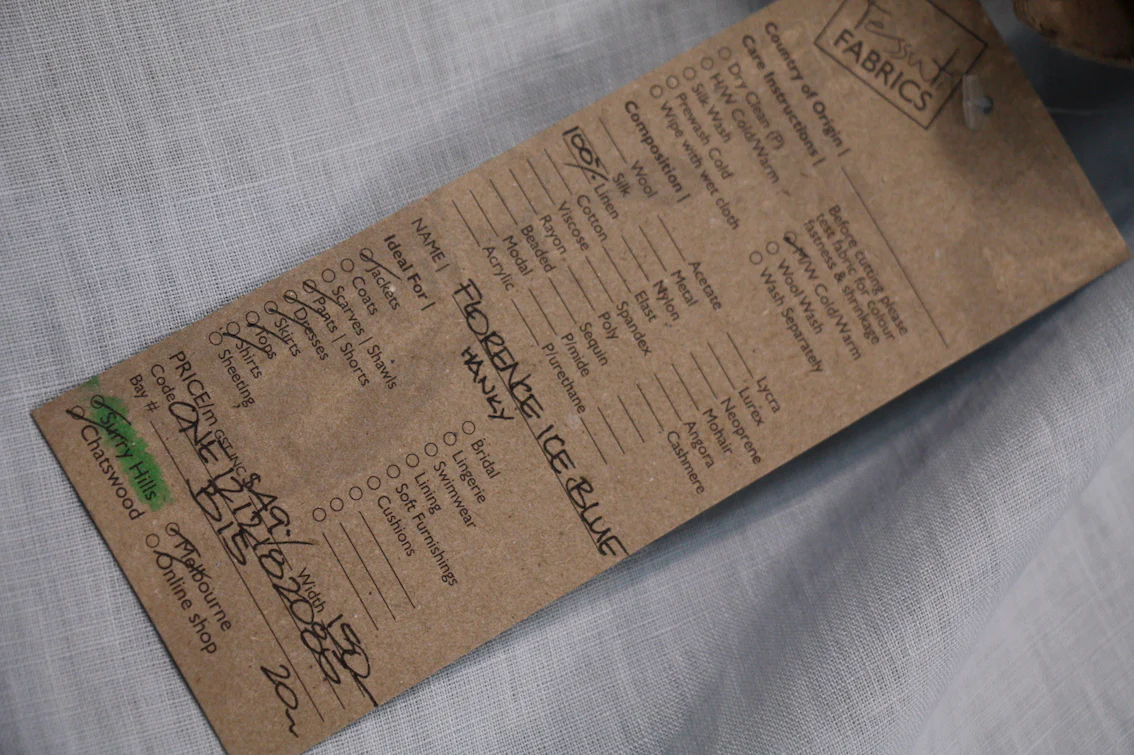 Tessuti
FABRICS
Country of Origin |
Care Instructions |
Dry Clean (P)
H/W Cold/Warm
Silk Wash
Prewash Cold
Wipe with wet cloth
Before cutting please
test fabric for colour
fastness & shrinkage
M/W Cold/Warm
Wool Wash
Wash Separately
Composition |
Wool
Silk
100% Linen
Cotton
Viscose
Rayon
Beaded
Modal
Acrylic
Acetate
Metal
Nylon
Elast
Spandex
Poly
Sequin
P/mide
P/urethane
Lycra
Lurex
Neoprene
Mohair
Angora
Cashmere
NAME | FLORENCE ICE BLUE
HANKY
Ideal For |
Jackets
Coats
Scarves | Shawls
Pants | Shorts
Dresses
Skirts
Tops
Shirts
Sheeting
Bridal
Lingerie
Swimwear
Lining
Soft Furnishings
Cushions
PRICE/m GST.INC $49.- Width 150
Code
Bay # D15 20m
Surry Hills
Chatswood
Melbourne
Online shop